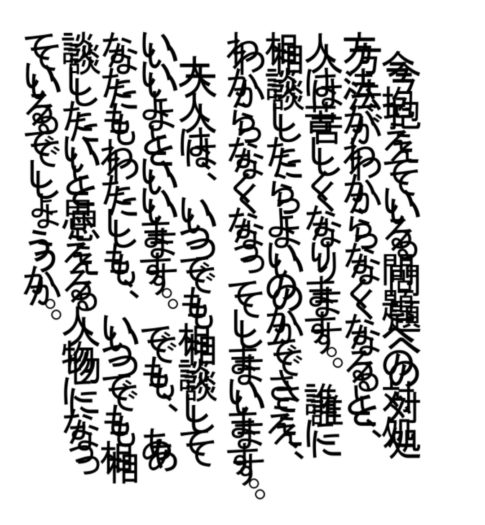 今抱えている問題への対処
方法がわからなくなると、
人は苦しくなります。誰に
相談したらよいのかでさえ、
わからなくなってしまいます。
大人は、いつでも相談して
いいよといいます。でも、あ
なたもわたしも、いつでも相
談したいと思える人物になっ
ているでしょうか。